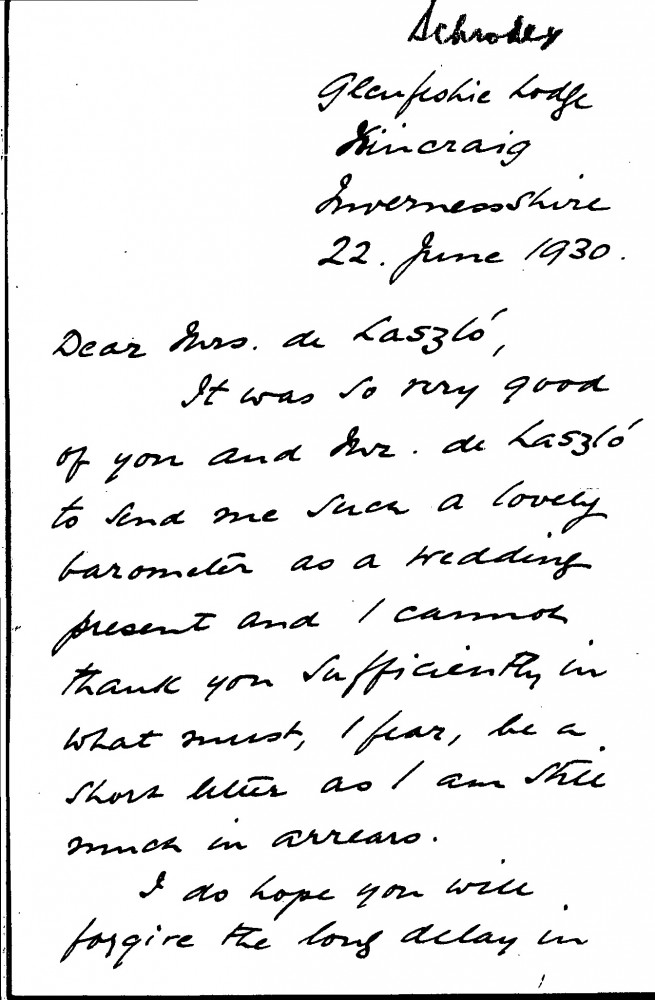 Schroder
Glenfeshie Lodge
Kincraig
Invernessshire
22. June 1930.
Dear Mrs. de László,
It was so very good
of you and Mr. de László
to send me such a lovely
barometer as a wedding
present and I cannot
thank you sufficiently in
what must, I fear, be a
short letter as I am still
much in arrears.
I do hope you will
forgive the long delay in